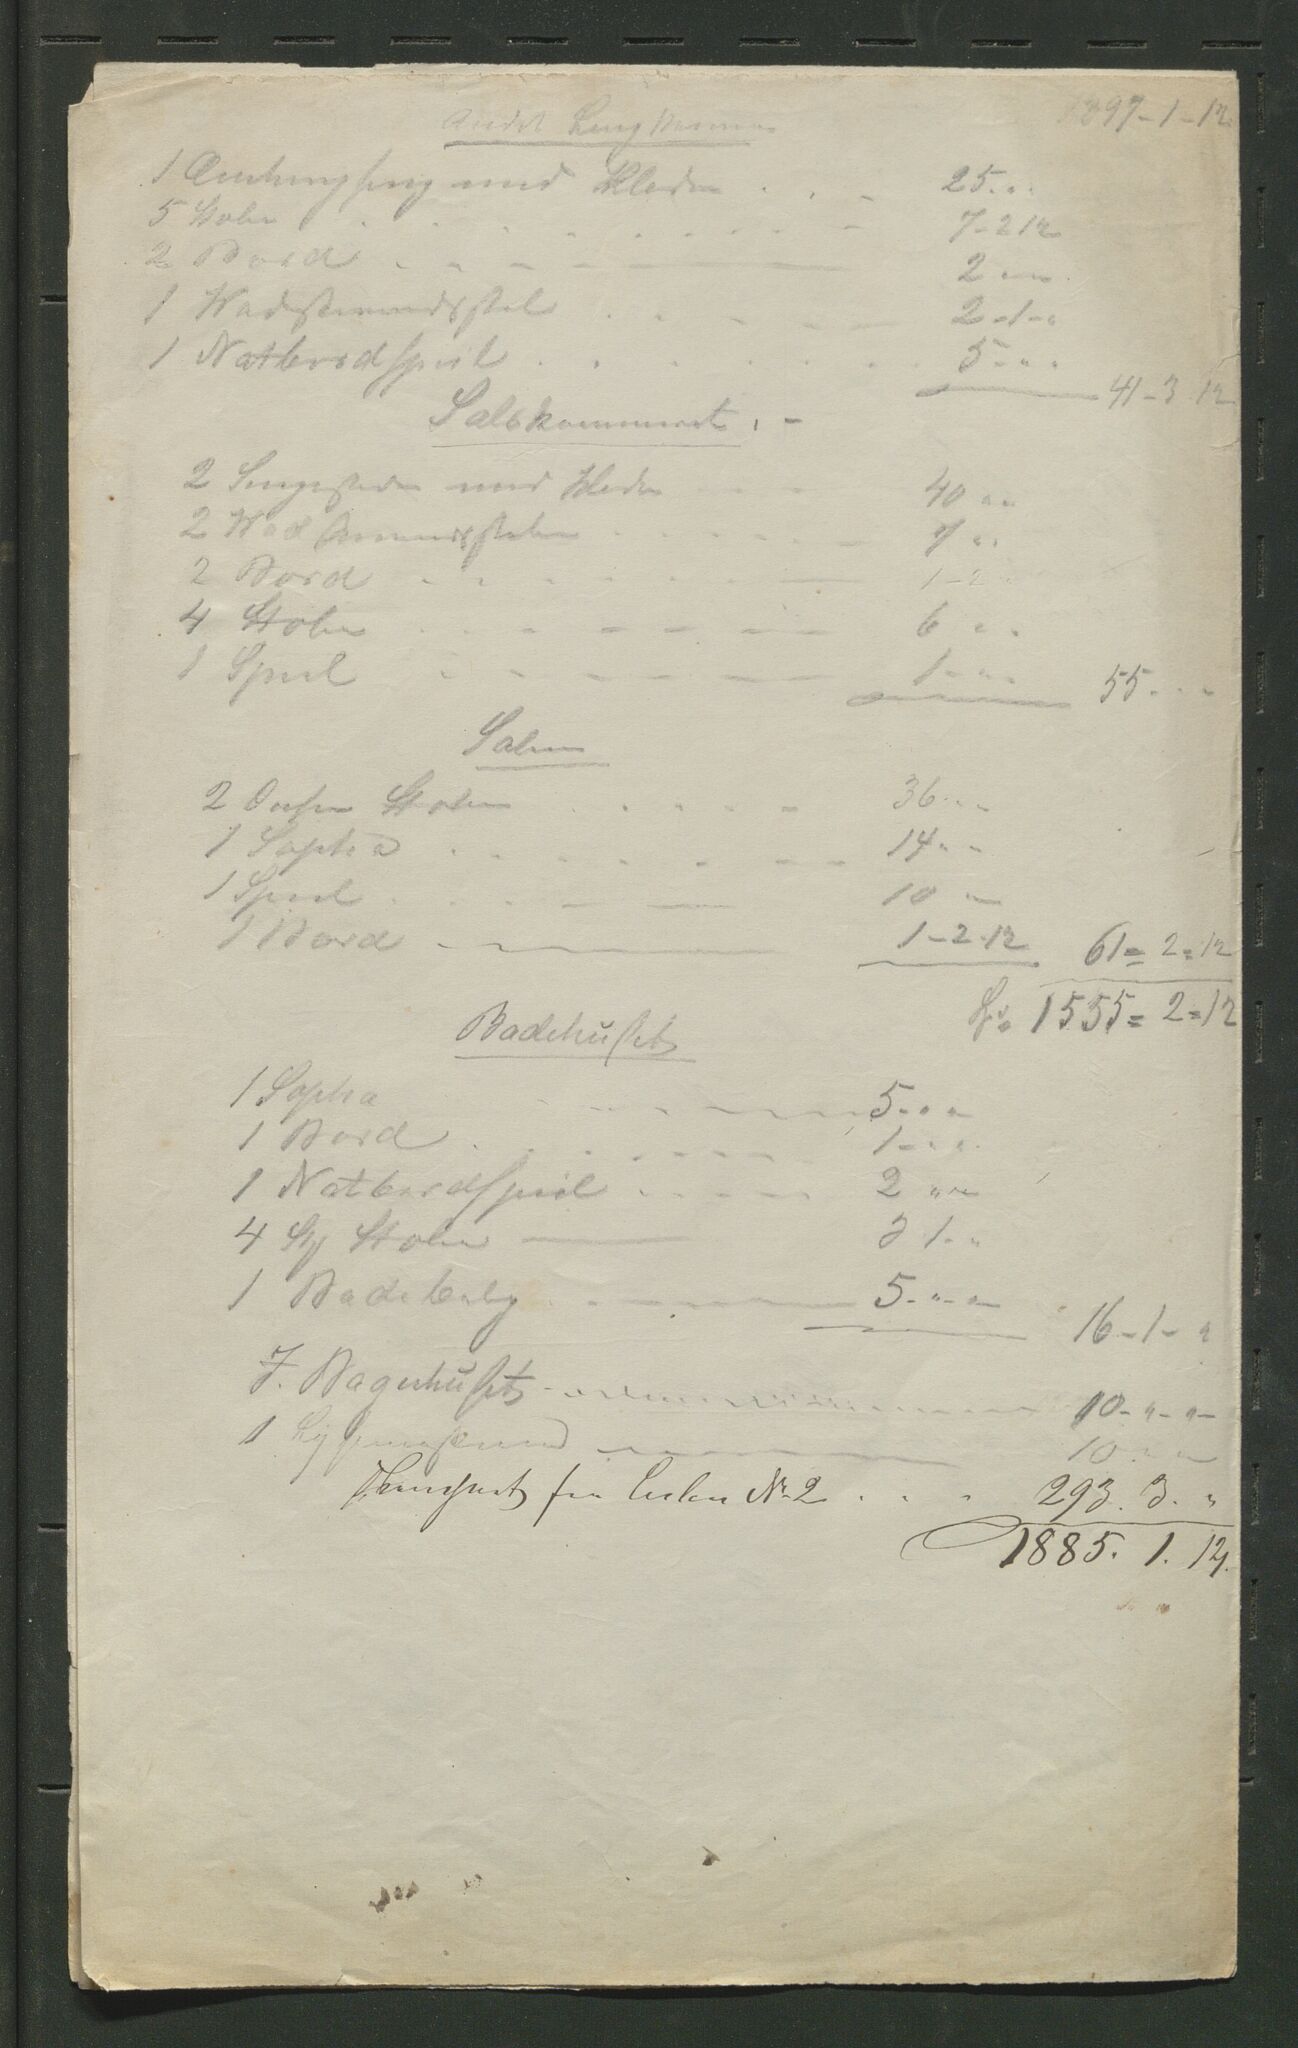 1397-1-12
Andet
1 med Klæder 25 " "
5 Stole 7-2 12
2 Bord 2 " "
1 Vadskevandsstol 2-1-"
1 Natbord Speil 5-" "
41-3 12
Salskammeret
2 Sengesteder med Klæder 40 " "
2 Vadskevandsstole 7 " "
2 Bord 1-2 "
4 Stole 6 " "
1 Speil 1-" "
55 " "
Salen
2 Stole 36 " "
1 Sopha 14 " "
1 Speil 10 "
1 Bord 1-2-12
61=2=12
1555=2=12
Badehuset
1 Sopha 5-" "
1 Bord 1-" "
1 Natbord Speil 2 " "
4 Stole 3 1-"
1 Badebalg 5-"-"
16-1-"
I Bagerhuset 10-"-"-
1 10 " "
Transport fra N: 2 293. 3. "
1885. 1. 12.